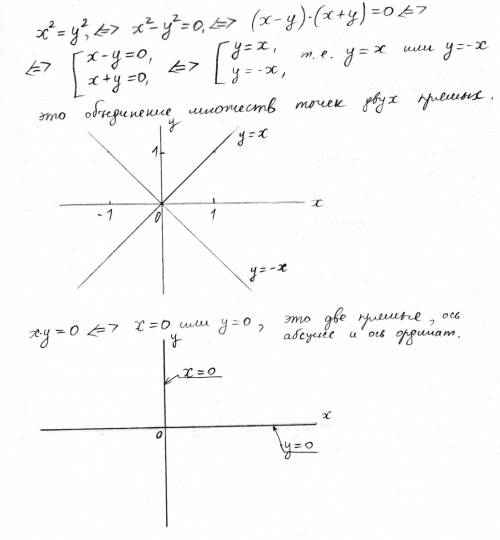 x² = y², <=> x² - y² = 0, <=> (x-y)·(x+y) = 0 <=>
<=> [ x-y=0, <=> [ y=x, т.е. y=x или y=-x
x+y=0, y=-x,
это объединение множеств точек двух прямых.
y
y=x
1
-1 0 1 x
y=-x
x·y=0 <=> x=0 или y=0, это две прямые, ось
абсцисс и ось ординат.
y
x=0
x
0
y=0